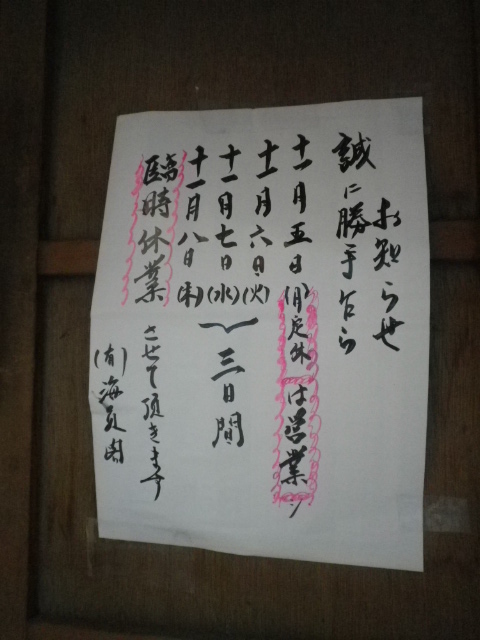 お知らせ
誠に勝手乍ら
十一月五日(月)定休は営業
十一月六日(火)
十一月七日(水)
十一月八日(木)
三日間
臨時休業
させて頂きます
(有)海